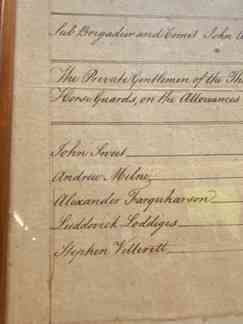 Sub Brigadier and Cornet John
The Private Gentlemen of the Th
Horse Guards, on the Allowances
John Sweet
Andrew Milne
Alexander Farquharson
Luddovick Loddiges
Stephen Villevett